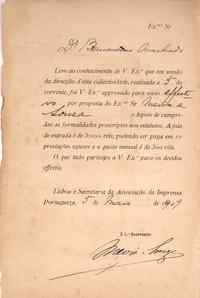 Ex.mo Sr.
Dr. Bernardino Machado
Levo ao conhecimento de V. Ex.ª que em sessão
da direcção d'esta collectividade, realisada a 5 do
corrente, foi V. Ex.ª approvado para socio effecti-
vo por proposta do Ex.mo Sr.
Souza e depois de cumpri-
das as formalidades prescriptas nos estatutos. A joia
de entrada é de réis, podendo ser paga em
prestações e a quota mensal é de 300 réis.
O que tudo participo a V. Ex.ª para os devidos
effeitos.
Lisboa e Secretaria da Associação da Imprensa
Portugueza, 5 de de 1907
O 1.º Secretario